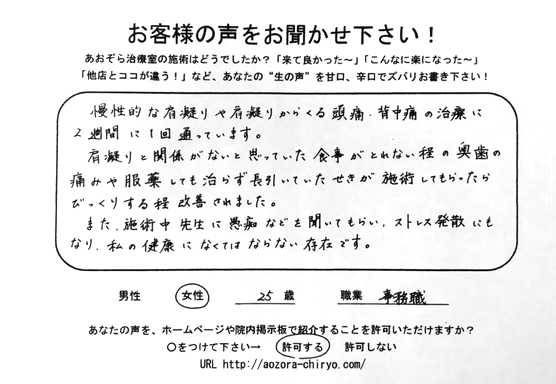 お客様の声をお聞かせ下さい！
あおぞら治療室の施術はどうでしたか？「来て良かった～」「こんなに楽になった～」
「他店とココが違う！」など、あなたの“生の声”を甘口、辛口でズバリお書き下さい！
慢性的な肩凝りや肩凝りからくる頭痛、背中痛の治療に
2週間に1回通っています。
肩凝りと関係がないと思っていた食事がとれない程の奥歯の
痛みや服薬しても治らず長引いていたせきが施術してもらったら
びっくりする程改善されました。
また、施術中先生に愚痴などを聞いてもらい、ストレス発散にも
なり、私の健康になくてはならない存在です。
男性 女性 25歳 職業 事務職
あなたの声を、ホームページや院内掲示板で紹介することを許可いただけますか？
○をつけて下さい→ 許可する 許可しない
URL http://aozora-chiryo.com/